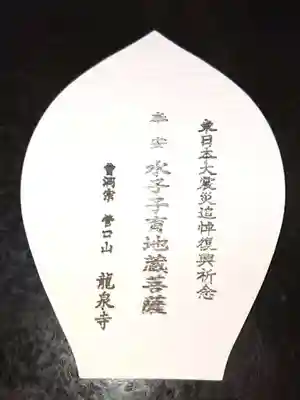 東日本大震災追悼復興祈念
幸安 水子子育地蔵菩薩
曹洞宗 曹口山 龍泉寺